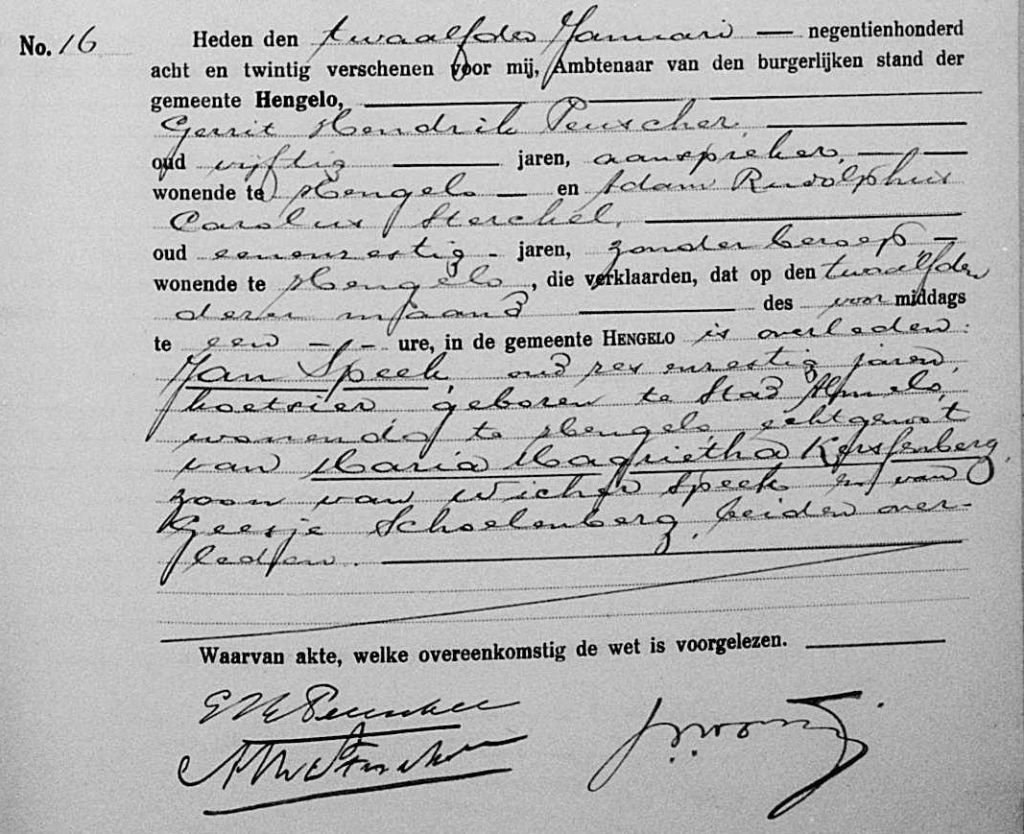 No. 16 Heden den twaalfden Januari — negentienhonderd
acht en twintig verschenen voor mij, Ambtenaar van den burgerlijken stand der
gemeente Hengelo,
Gerrit Hendrik Peuscher,
oud vijftig jaren, aanspreker,
wonende te Hengelo — en Adam Rudolphus
Carolus Sterckel,
oud eenenzestig - jaren, zonder beroep -
wonende te Hengelo, die verklaarden, dat op den twaalfden
dezer maand des voormiddags
te een - - - ure, in de gemeente Hengelo is overleden:
Jan Speek, oud zes en zestig jaren,
koetsier geboren te Stad Almelo,
wonende te Hengelo, echtgenoot
van Maria Magrietha
zoon van Wicher Speek en van
Geesje Schoelenberg, beiden over-
leden.
Waarvan akte, welke overeenkomstig de wet is voorgelezen.
G H Peuscher